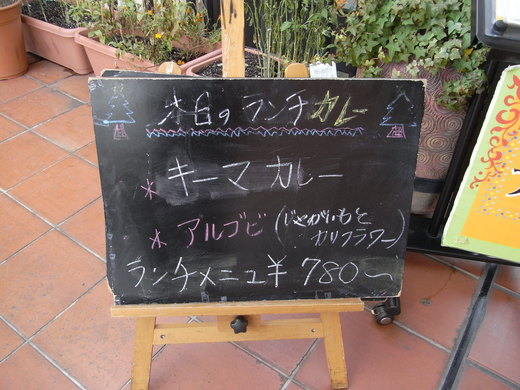 本日のランチカレー
* キーマカレー
* アルゴビ (じゃがいもと
カリフラワー)
ランチメニュー¥780〜